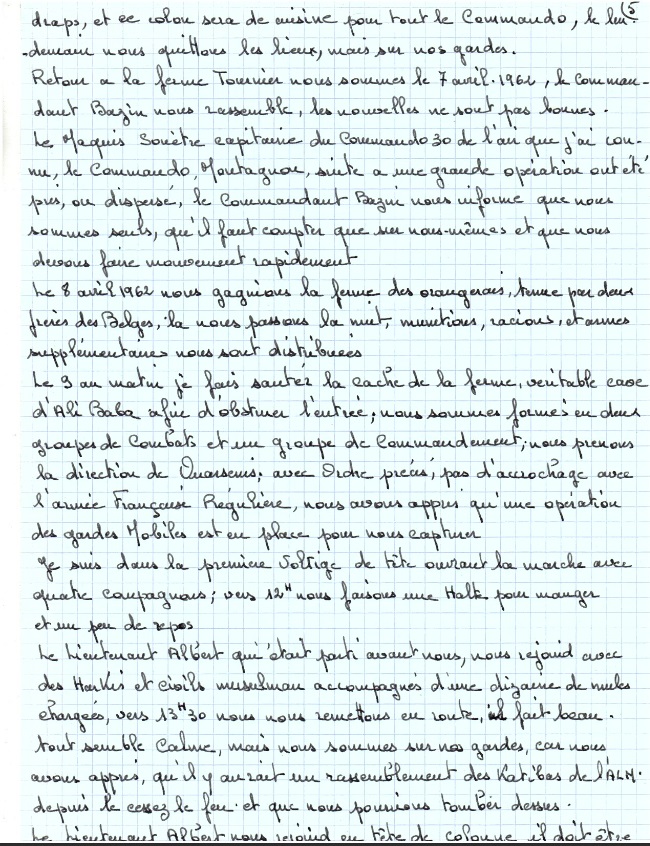 draps, et ce colon sera de cuisine pour tout le Commando, le len- (5
-demain nous quittons les lieux, mais sur nos gardes.
Retour a la ferme Tournier nous sommes le 7 avril.1962, le comman-
dant Bazin nous rassemble, les nouvelles ne sont pas bonnes.
Le Maquis capitaine du Commando 30 de l'an que j'ai con-
nu, le Commando, Montagnon, suite a une grande opération ont été
pris, ou dispersé, le Commandant Bazin nous informe que nous
sommes seuls, qu'il faut compter que sur nous-mêmes et que nous
devons faire mouvement rapidement
Le 8 avril 1962 nous gagnions la ferme des orangerais, tenue par deux
frères des Belges, la nous passons la nuit, munitions, racions, et armes
supplémentaires nous sont distribuées
Le 9 au matin je fais sautér la cache de la ferme, veritable cave
d'Ali Baba afin d'obstruer l'entrée; nous sommes formés en deux
groupes de Combats et un groupe de Commandement; nous prenons
la direction de Ouarsenis; avec Ordre précis, pas d'accrochage avec
l'armée Française Régulière, nous avons appris qu'une opération
des gardes Mobiles est en place pour nous capturer
Je suis dans la première Voltige de tête ouvrant la marche avec
quatre compagnons; vers 12H nous faisons une Halte pour manger
et un peu de repos
Le Lieutenant Albert qui était parti avant nous, nous rejoind avec
des Harkis et civils musulman accompagnés d'une dizaine de mules
chargées, vers 13H30 nous nous remettons en route, il fait beau.
tout semble Calme, mais nous sommes sur nos gardes, car nous
avons appris, qu'il y aurait un rassemblement des Katibas de l'ALN.
depuis le cessez le feu. et que nous pourrions tombér dessus.
Le Lieutenant Albert nous rejoind en tête de colonne il doit être